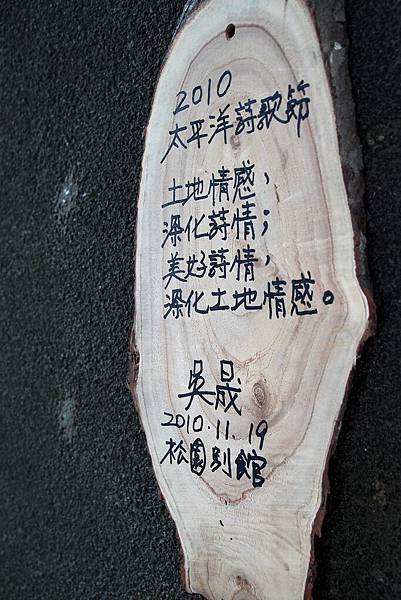 2010
太平洋詩歌節
土地情感，
深化詩情；
美好詩情，
深化土地情感。
吳晟
2010.11.19
松園別館